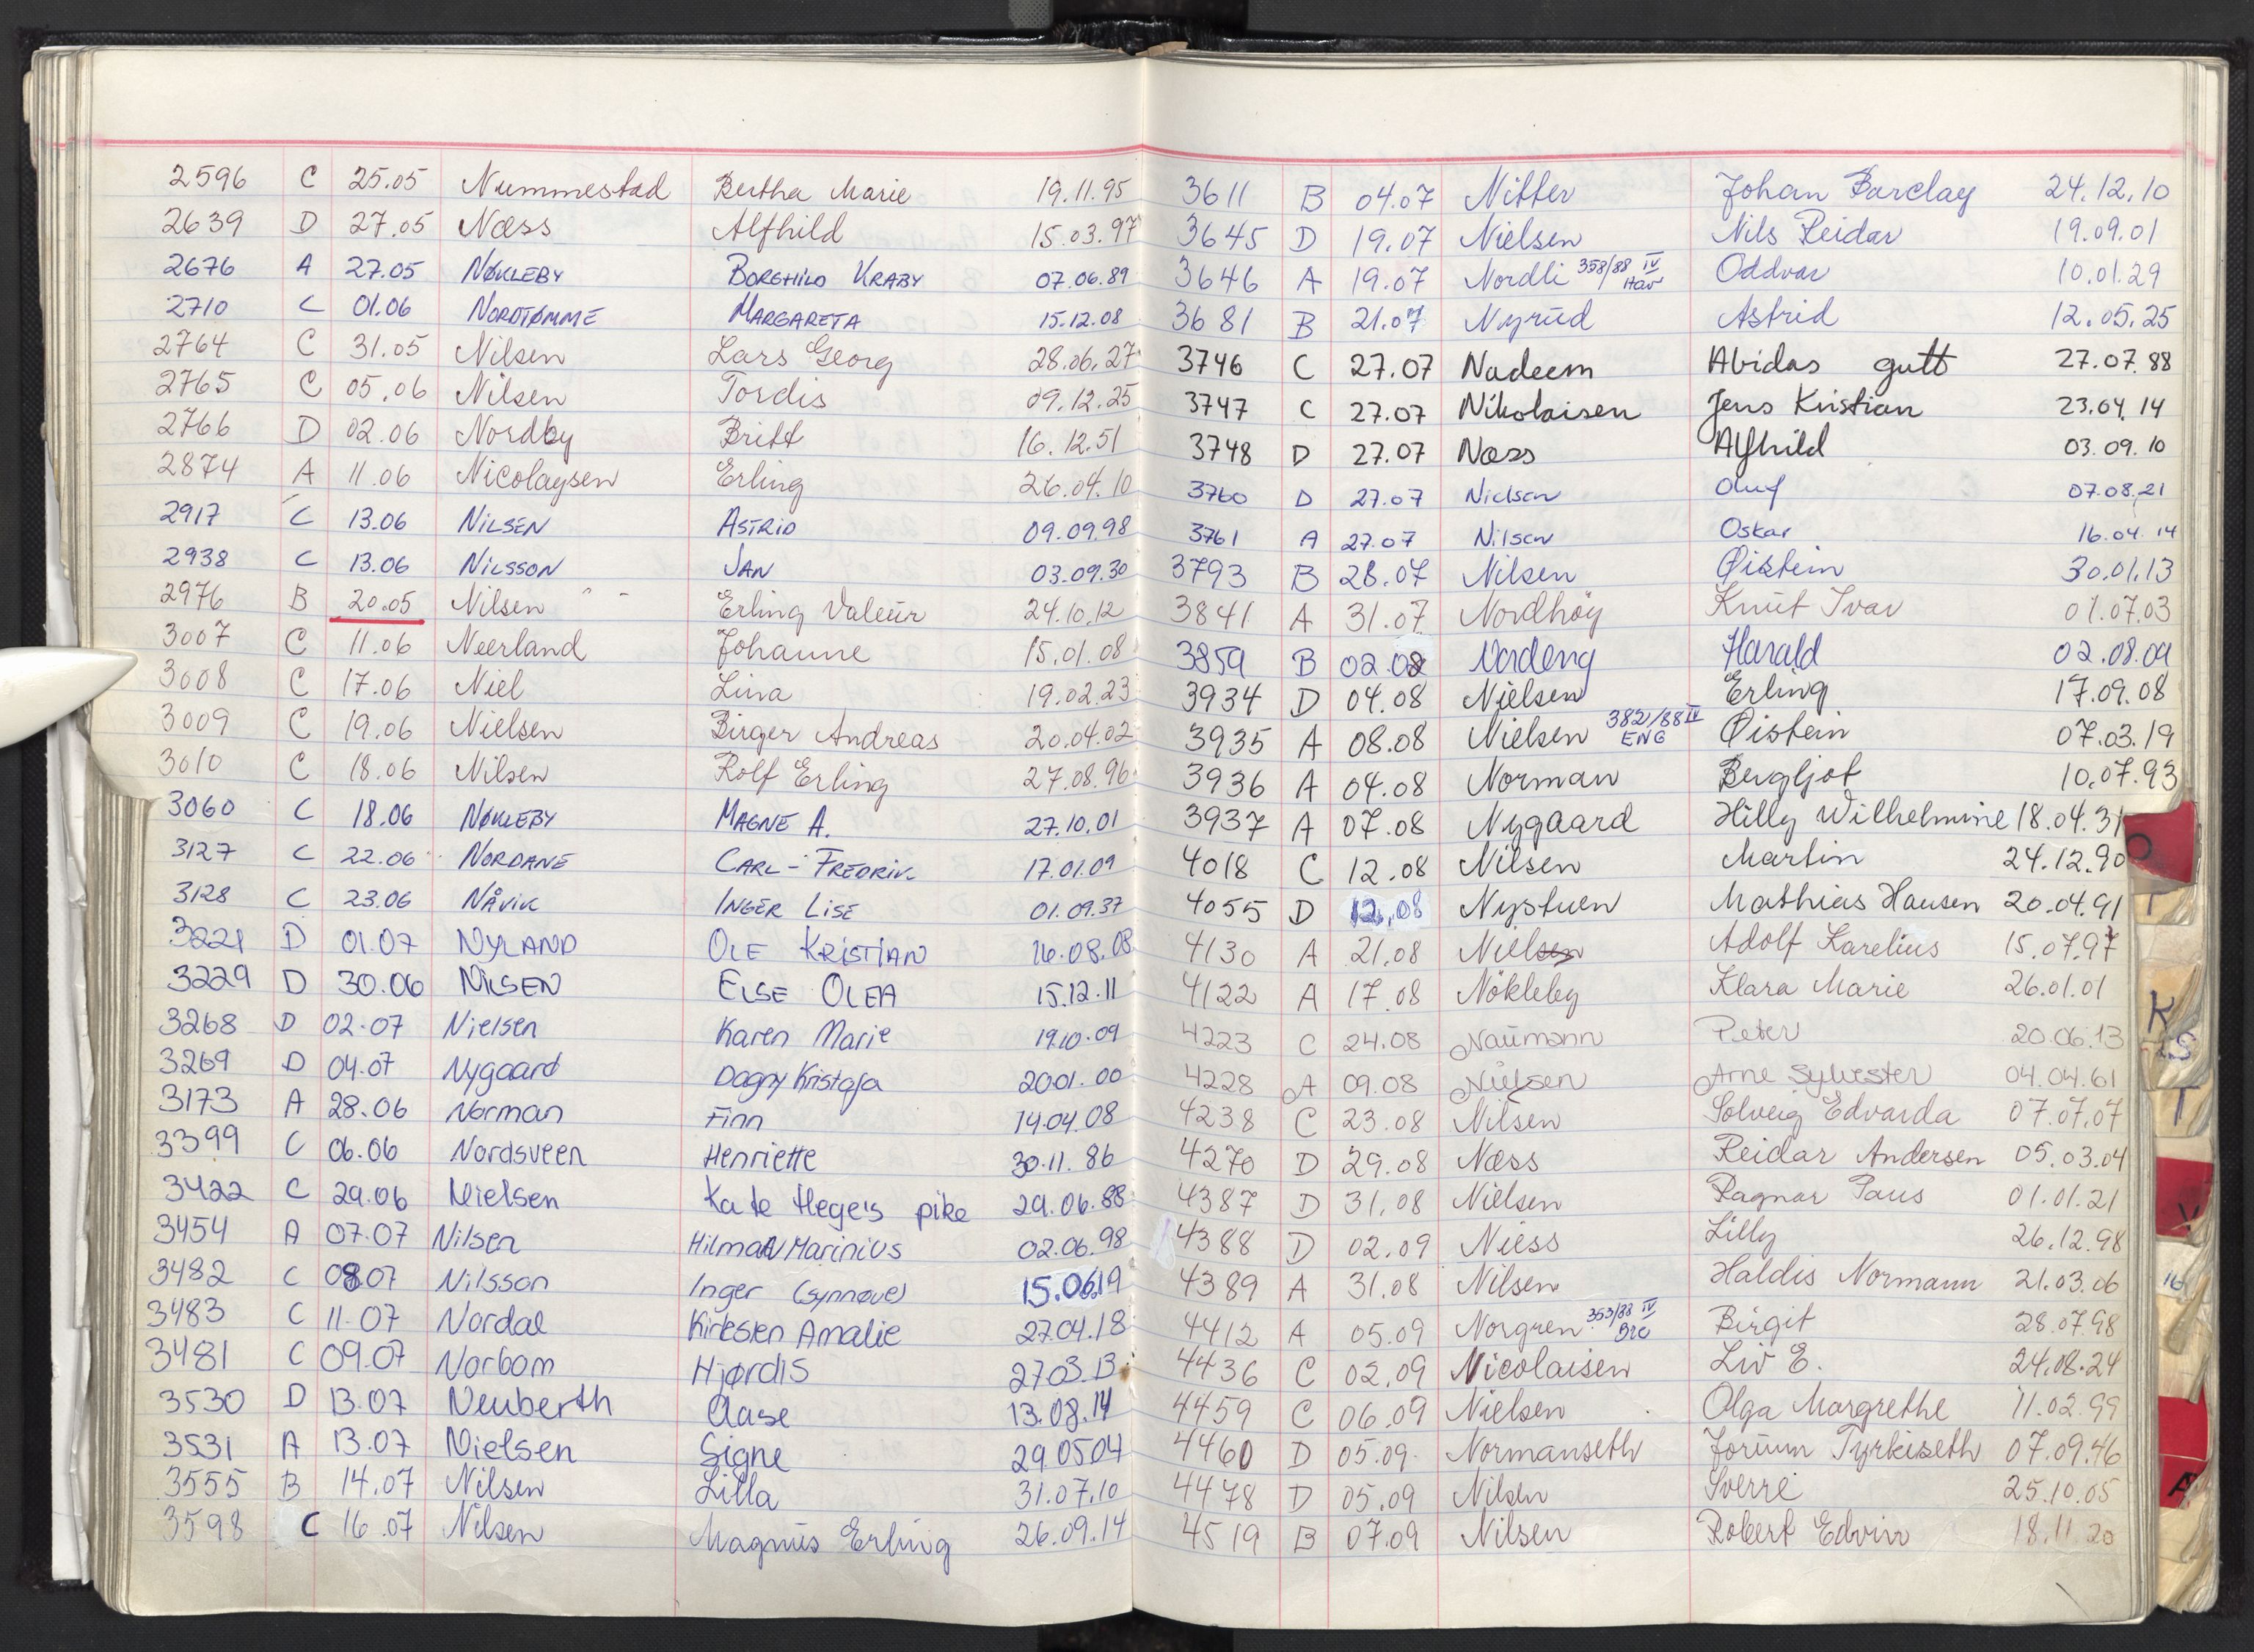 2596 C 25.05 Nummestad Bertha Marie 19.11.95
2639 D 27.05 Næss Alfhild 15.03.97
2676 A 27.05 NØKLEBY BORGHILD KRABY 07.06.89
2710 C 01.06 NORDTØMME MARGARETA 15.12.08
2764 C 31.05 Nilsen Lars Georg 28.06.27
2765 C 05.06 Nilsen Tordis 09.12.25
2766 D 02.06 Nordby Britt 16.12.51
2874 A 11.06 Nicolaysen Erling 26.04.10
2917 C 13.06 NILSEN ASTRID 09.09.98
2938 C 13.06 NILSSON JAN 03.09.30
2976 B 20.05 Nilsen Erling Valeur 24.10.12
3007 C 11.06 Neerland Johanne 15.01.08
3008 C 17.06 Niel Lina 19.02.23
3009 C 19.06 Nielsen Birger Andreas 20.04.02
3010 C 18.06 Nilsen Rolf Erling 27.08.96
3060 C 18.06 NØKLEBY MAGNE A. 27.10.01
3127 C 22.06 NORDANE CARL-FREDRIK 17.01.09
3128 C 23.06 NÅVIK INGER LISE 01.09.37
3221 D 01.07 NYLAND OLE KRISTIAN 16.08.08
3229 D 30.06 NILSEN ELSE OLEA 15.12.11
3268 D 02.07 Nielsen Karen Marie 19.10.09
3269 D 04.07 Nygaard Dagny Kristofa 20.01.00
3173 A 28.06 Norman Finn 14.04.08
3399 C 06.06 Nordsveen Henriette 30.11.86
3422 C 29.06 Nielsen Kate Hege's pike 29.06.88
3454 A 07.07 Nilsen Hilman Marinius 02.06.98
3482 C 08.07 Nilsson Inger (Synnøve) 15.06.19
3483 C 11.07 Nordal Kirsten Amalie 27.04.18
3481 C 09.07 Norbom Hjørdis 27.03.13
3530 D 13.07 Neuberth Aase 13.08.14
3531 A 13.07 Nielsen Signe 29.05.04
3555 B 14.07 Nilsen Lilla 31.07.10
3598 C 16.07 Nilsen Magnus Erling 26.09.14
3611 B 04.07 Nitter Johan Barclay 24.12.10
3645 D 19.07 Nielsen Nils Reidar 19.09.01
3646 A 19.07 Nordli 358/88 IV Hav Oddvar 10.01.29
3681 B 21.07 Nyrud Astrid 12.05.25
3746 C 27.07 Nadeem Abidas gutt 27.07.88
3747 C 27.07 Nikolaisen Jens Kristian 23.04.14
3748 D 27.07 Næss Alfhild 03.09.10
3760 D 27.07 Nielsen Oluf 07.08.21
3761 A 27.07 Nilsen Oskar 16.04.14
3793 B 28.07 Nilsen Øistein 30.01.13
3841 A 31.07 Nordhøy Knut Ivar 01.07.03
3859 B 02.08 Nordeng Harald 02.08.09
3934 D 04.08 Nielsen Erling 17.09.08
3935 A 08.08 Nielsen 382/88 IV ENG Øistein 07.03.19
3936 A 04.08 Norman Bergljot 10.07.93
3937 A 07.08 Nygaard Hilly Wilhelmine 18.04.31
4018 C 12.08 Nilsen Martin 24.12.90
4055 D 12.08 Nystuen Mathias Hansen 20.04.91
4130 A 21.08 Nielsen Adolf Karelius 15.07.97
4122 A 17.08 Nökleby Klara Marie 26.01.01
4223 C 24.08 Naumann Peter 20.06.13
4228 A 09.08 Nielsen Arne Sylvester 04.04.61
4238 C 23.08 Nilsen Solveig Edvarda 07.07.07
4270 D 29.08 Næss Reidar Andersen 05.03.04
4387 D 31.08 Nielsen Ragnar Paus 01.01.21
4388 D 02.09 Niess Lilly 26.12.98
4389 A 31.08 Nilsen Haldis Normann 21.03.06
4412 A 05.09 Norgren 353/88 IV Bro Birgit 28.07.98
4436 C 02.09 Nicolaisen Liv E. 24.08.24
4459 C 06.09 Nielsen Olga Margrethe 11.02.99
4460 D 05.09 Normanseth Jorunn Tyrkiseth 07.09.46
4478 D 05.09 Nilsen Sverre 25.10.05
4519 B 07.09 Nilsen Robert Edvin 18.11.20
O
K
S
T
V
16
A